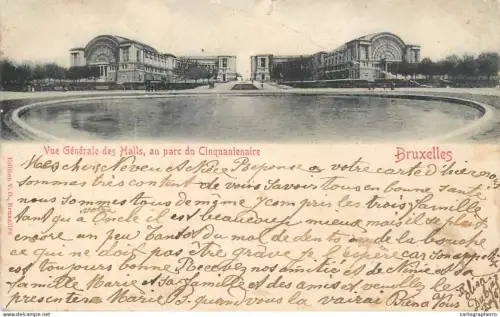 Vue Générale des Halls, au parc du Cinquantenaire
Bruxelles
Edition V.G. Bruxelles
Mes chers Neveu et Nièce Reponse a votre carte d'hier nous
sommes très content de vous Savoir tous en bonne Santé
nous sommes tous de meme y compris les trois famille
tant que Oncle il est beaucoup mieux mais il se plait
encore un peu Tantot du mal de dents ou de la bouche
ce que ne doit pas etre grave Je l'espère car son appetit
est toujours bonne Recevez nos amitiés et de Ninie et sa
famille Marie et sa famille et des amis et veuillez les
presenter a Marie quand vous la vairai Bien a Vous
www.cartapografica.com